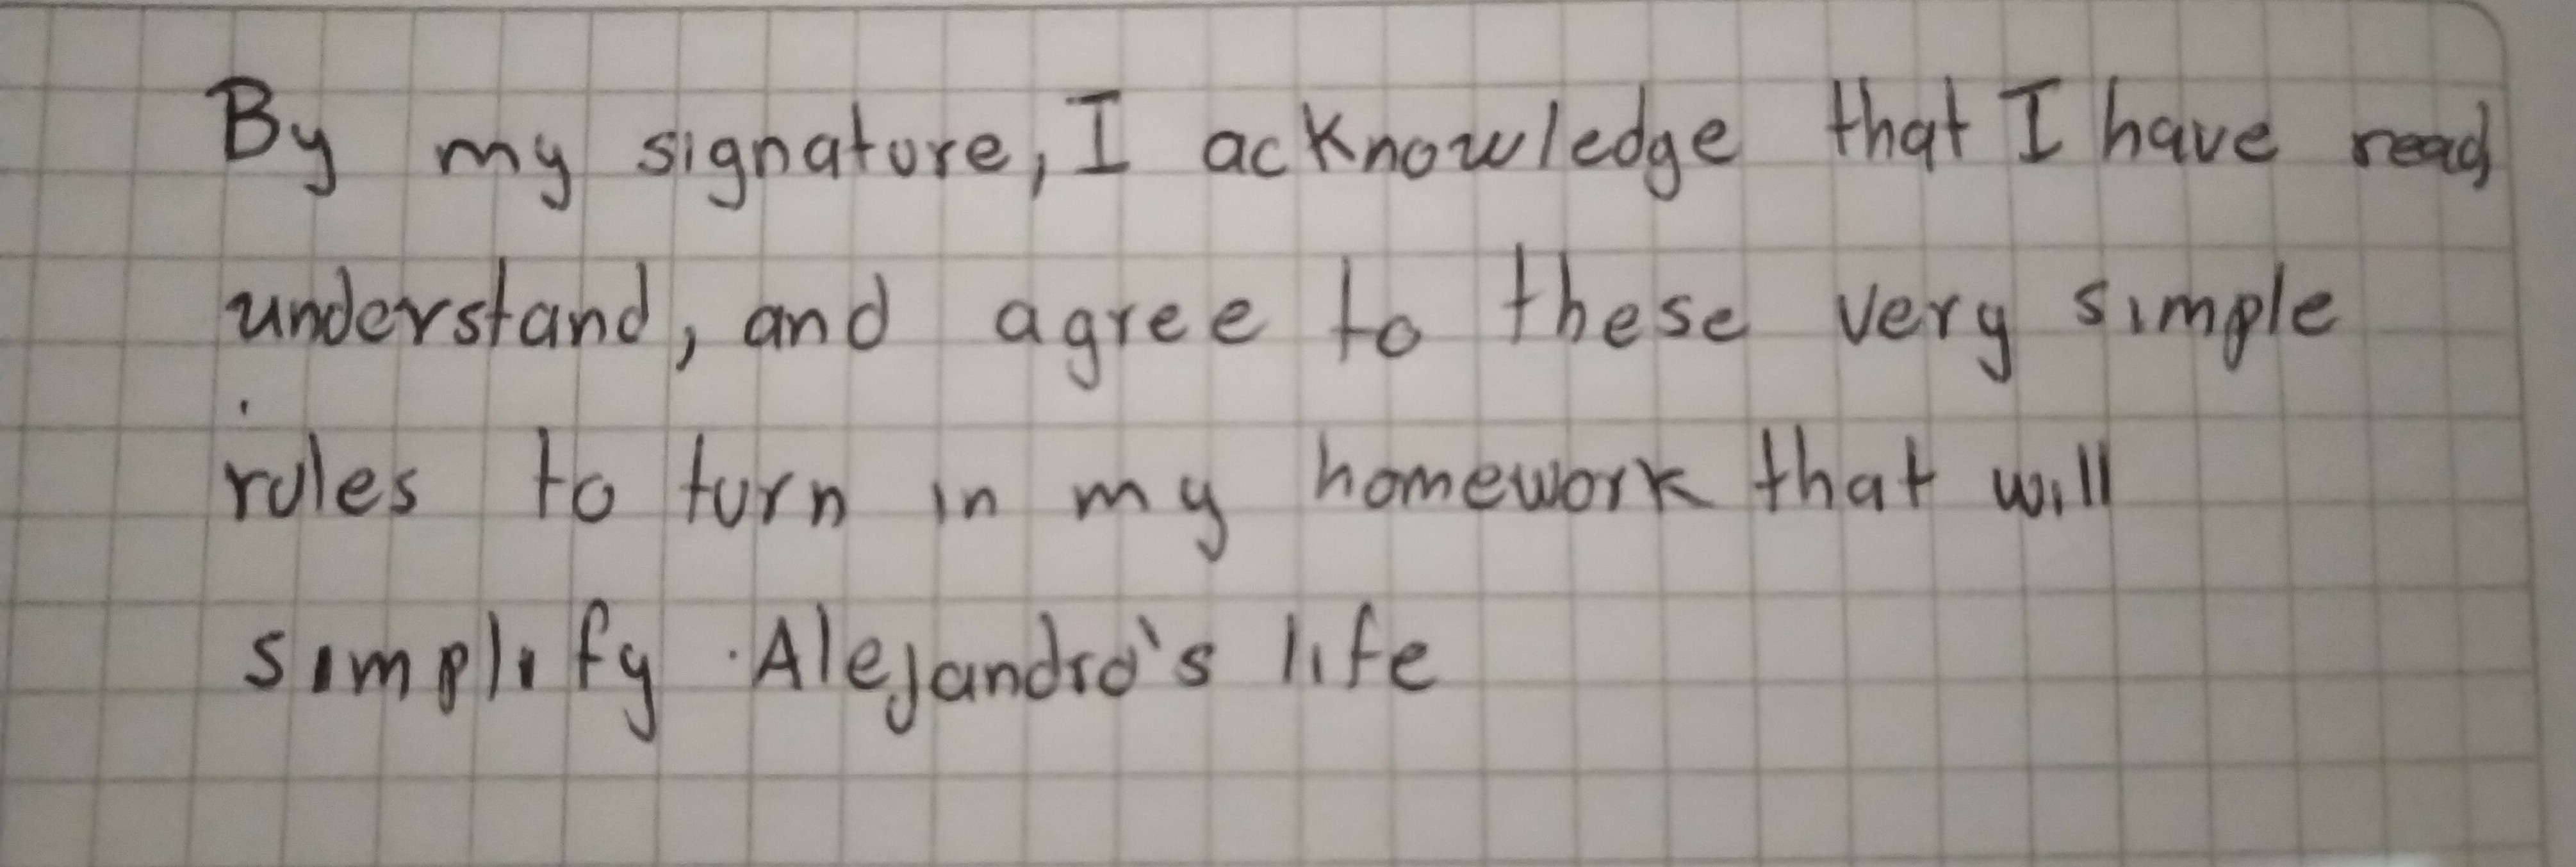 By my signature, I acknowledge that I have read,
understand, and agree to these very simple
rules to turn in my homework that will
simplify Alejandro's life